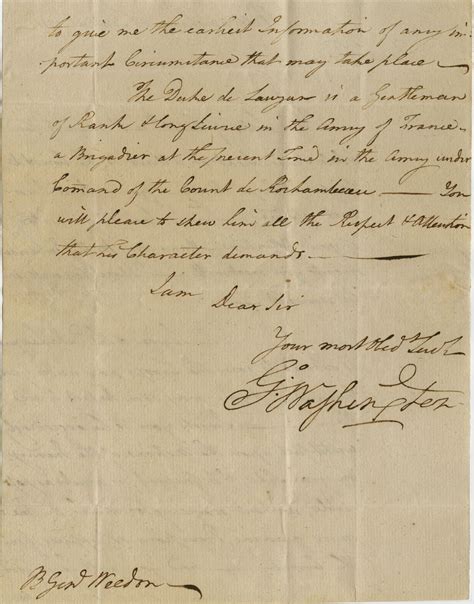 to give me the earliest Information of any im-
portant Circumstance that may take place —
The Duke de Lauzun is a Gentleman
of Rank & long Service in the Army of France —
a Brigadier at the present Time in the Army under
Comand of the Count de Rochambeau — You
will please to shew him all the Respect & Attention
that his Character demands —
I am
Dear Sir
Your most Obed. Servt
Go. Washington
B Genl Weedon —